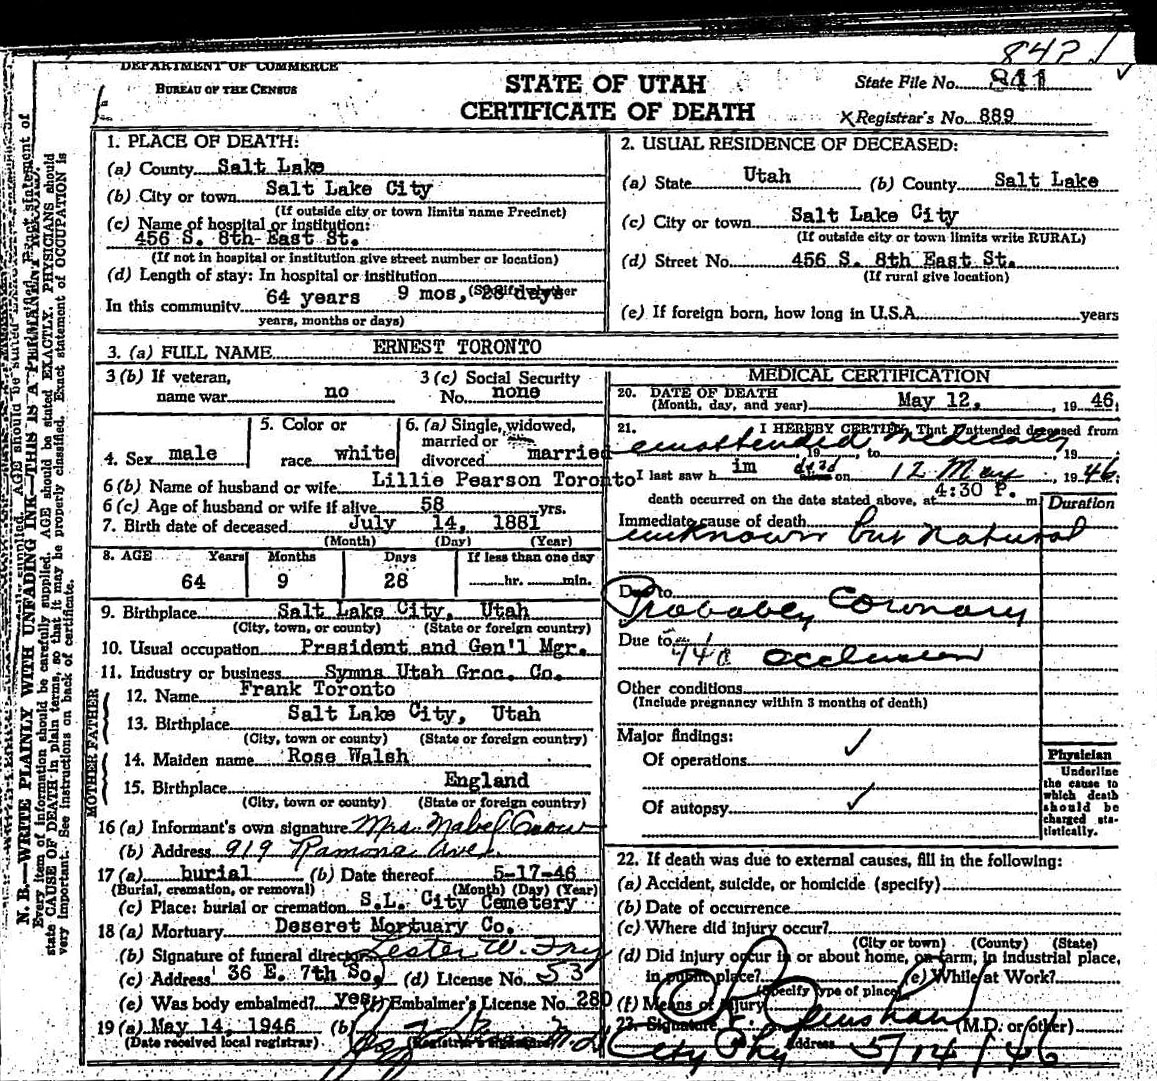 842
DEPARTMENT OF COMMERCE
BUREAU OF THE CENSUS
STATE OF UTAH
CERTIFICATE OF DEATH
State File No. 841
X Registrar's No. 889
N. B.—WRITE PLAINLY WITH UNFADING INK—THIS IS A PERMANENT RECORD.
Every item of information should be carefully supplied. AGE should be stated EXACTLY. PHYSICIANS should
state CAUSE OF DEATH in plain terms, so that it may be properly classified. Exact statement of OCCUPATION is
very important. See instructions on back of certificate.
1. PLACE OF DEATH:
(a) County Salt Lake
(b) City or town Salt Lake City
(If outside city or town limits name Precinct)
(c) Name of hospital or institution:
456 S. 8th East St.
(If not in hospital or institution give street number or location)
(d) Length of stay: In hospital or institution
(Specify whether
In this community 64 years 9 mos, 28 days
years, months or days)
2. USUAL RESIDENCE OF DECEASED:
(a) State Utah (b) County Salt Lake
(c) City or town Salt Lake City
(If outside city or town limits write RURAL)
(d) Street No. 456 S. 8th East St.
(If rural give location)
(e) If foreign born, how long in U.S.A. years
3. (a) FULL NAME ERNEST TORONTO
3 (b) If veteran, name war no
3 (c) Social Security No. none
4. Sex male
5. Color or race white
6. (a) Single, widowed, married or divorced married
6 (b) Name of husband or wife Lillie Pearson Toronto
6 (c) Age of husband or wife if alive 58 yrs.
7. Birth date of deceased July 14, 1881
(Month) (Day) (Year)
8. AGE Years Months Days If less than one day
64 9 28 hr. min.
9. Birthplace Salt Lake City, Utah
(City, town, or county) (State or foreign country)
10. Usual occupation President and Gen'l Mgr.
11. Industry or business Symns Utah Groc. Co.
FATHER
12. Name Frank Toronto
13. Birthplace Salt Lake City, Utah
(City, town or county) (State or foreign country)
MOTHER
14. Maiden name Rose Walsh
15. Birthplace England
(City, town or county) (State or foreign country)
16 (a) Informant's own signature Mrs. Mabel
(b) Address 919 Ramona Ave.
17 (a) burial (b) Date thereof 5-17-46
(Burial, cremation, or removal) (Month) (Day) (Year)
(c) Place: burial or cremation S.L. City Cemetery
18 (a) Mortuary Deseret Mortuary Co.
(b) Signature of funeral director Lester W. Fry
(c) Address 36 E. 7th So. (d) License No. 53
(e) Was body embalmed? yes (f) Embalmer's License No. 280
19 (a) May 14, 1946 (b) M.D.
(Date received local registrar) (Registrar's signature)
MEDICAL CERTIFICATION
20. DATE OF DEATH
(Month, day, and year) May 12, 1946
21. I HEREBY CERTIFY, That I attended deceased from
unattended medically, 19 , to , 19
I last saw him dead on 12 May, 1946
death occurred on the date stated above, at 4:30 P. m.
Duration
Immediate cause of death
unknown but natural
Due to
Probably coronary
Due to
94a occlusion
Other conditions
(Include pregnancy within 3 months of death)
Major findings:
Of operations ✓
Of autopsy ✓
Physician
Underline
the cause to
which death
should be
charged sta-
tistically.
22. If death was due to external causes, fill in the following:
(a) Accident, suicide, or homicide (specify)
(b) Date of occurrence
(c) Where did injury occur?
(City or town) (County) (State)
(d) Did injury occur in or about home, on farm, in industrial place,
in public place? (e) While at Work?
(Specify type of place)
(f) Means of Injury
23. Signature (M.D. or other)
City Phy Address 5/14/46